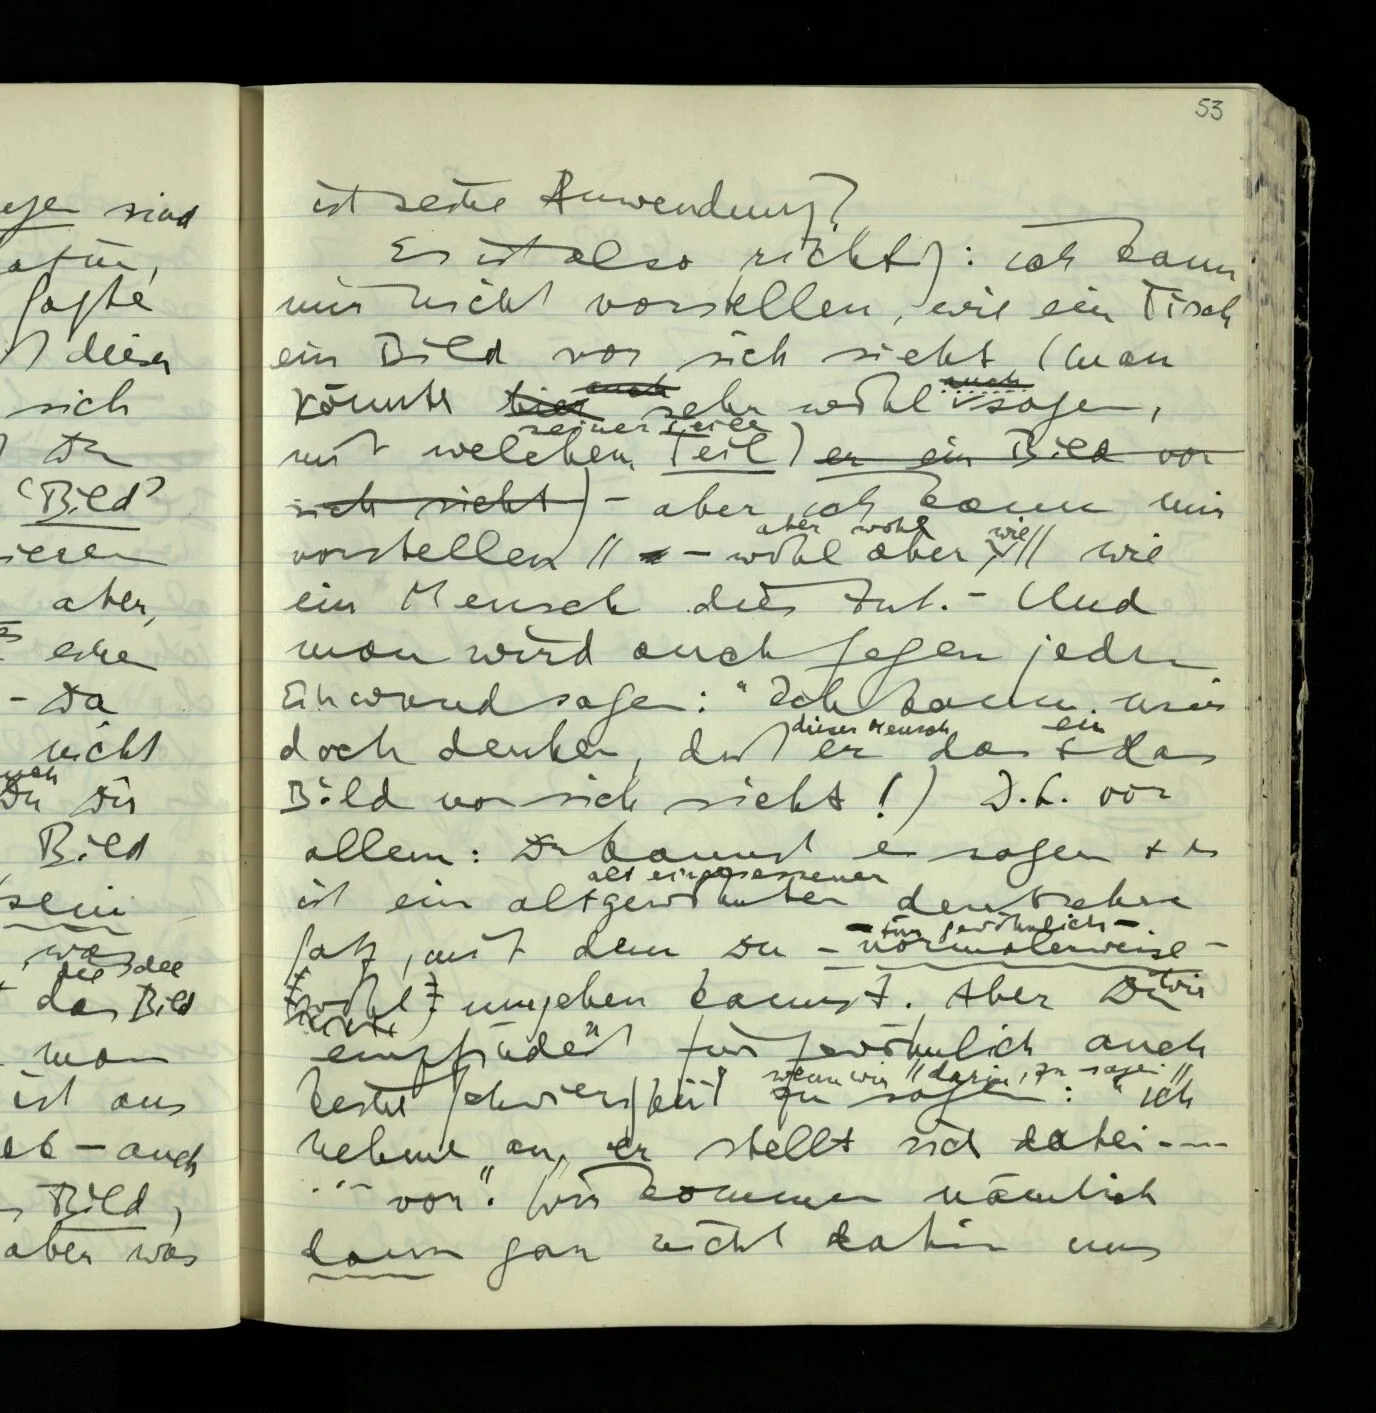 53
ist seine Anwendung?
Es ist also richtig: ich kann
mir nicht vorstellen, wie ein Tisch
ein Bild vor sich sieht (man
auch auch
könnte hier sehr wohl sagen,
seiner Teile
mit welchem Teil) er ein Bild vor
sich sieht) – aber ich kann mir
aber wohl wie
vorstellen // – wohl aber, // wie
ein Mensch dies tut. – Und
man wird auch gegen jeden
Einwand sagen: "Ich kann mir
dieser Mensch ein
doch denken, daß er das
Bild vor sich sieht!) D.h. vor
allem: Du kannst es sagen + es
alt eingesessener
ist ein altgewohnter deutscher
– für gewöhnlich –
Satz, mit dem Du – normalerweise –
wir
wohl umgehen kannst. Aber Du
empfindest für gewöhnlich auch
wenn wir // darin, zu sagen //
keine Schwierigkeit zu sagen: "ich
nehme an, er stellt sich dabei ---
... vor". Wir kommen nämlich
dann gar nicht dahin uns
sind
dieser
sich
Du
'Bild'
aber,
– Da
nicht
Du Dir
Bild
sein
was
die die
das Bild
man
ist aus
– auch
Bild,
aber was